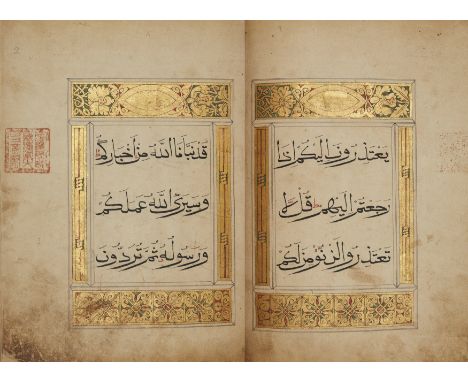 يَعْتَذِرُونَ إِلَيْكُمْ إِذَا
رَجَعْتُمْ إِلَيْهِمْ قُل لَّا
تَعْتَذِرُوا لَن نُّؤْمِنَ لَكُمْ
قَدْ نَبَّأَنَا اللَّهُ مِنْ أَخْبَارِكُمْ
وَسَيَرَى اللَّهُ عَمَلَكُمْ
وَرَسُولُهُ ثُمَّ تُرَدُّونَ